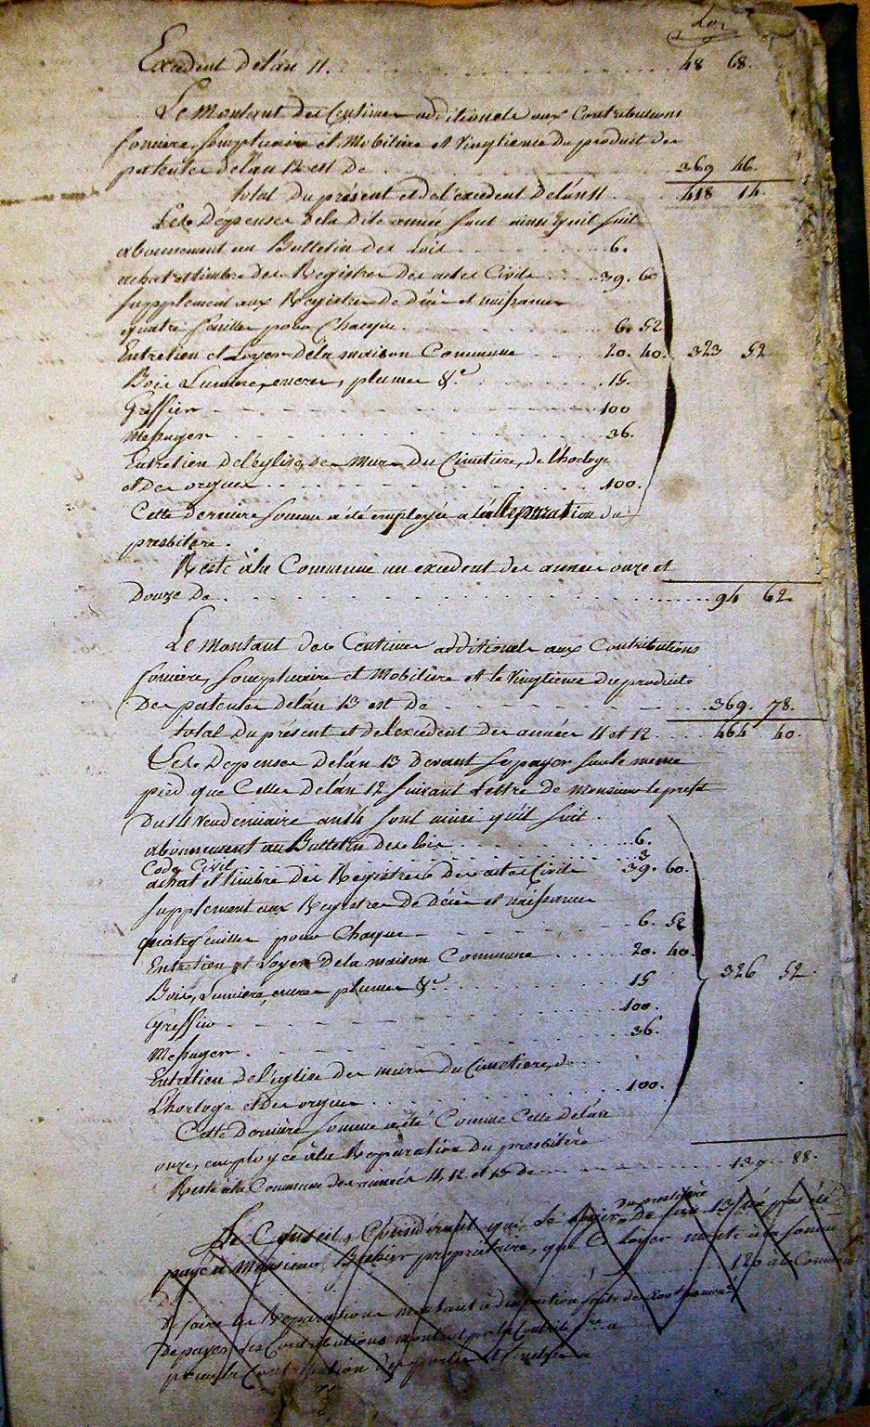 Excedent de l'an 11. 48 68.
Le Montant des Centimes additionels aux Contributions
fonciere, somptuaire et Mobiliere et Vingtieme du produit des
patentes de l'an 12 est de 369 46.
total du présent et de l'excedent de l'an 11 418 14.
Les Depenses de la dite année sont ainsi qu'il suit
abonnement au Bulletin des Lois 6.
achat et timbre des Registres des actes Civils 39. 60
supplement aux Registres de décès et naissances
quatre feuilles pour Chaque 6. 52
Entretien et Loyer de la maison Commune 20. 40. 323 52
Bois Lumiere, encre, plumes &c. 15.
Greffier 100
Messager 36.
Entretien de l'église, des Murs du Cimetiere, de l'horloge
et des orgues 100.
Cette derniere somme a été employée à la Reparation du
presbitère.
Reste à la Commune un excedent des années onze et
Douze de 94 62
Le Montant des Centimes additionels aux Contributions
fonciere, somptuaire et Mobiliere et le Vingtieme du produits
Des patentes de l'an 13 est de 369. 78.
total du présent et de l'excedent des années 11 et 12 464 40.
Les Depenses de l'an 13 devant se payer sur le meme
pied que Celles de l'an 12 suivant Lettre de Monsieur le prefet
Du 14 Vendemiaire an 14 sont ainsi qu'il suit.
abonnement au Bulletin des lois 6.
Code Civil 3
achat et timbre des Registres des actes Civils 39. 60.
supplement aux Registres de décès et naissances
quatre feuilles pour Chaque 6. 52
Entretien et Loyer de la maison Commune 20. 40.
Bois, Lumiere, encre plumes &c. 15 326 52.
Greffier 100.
Messager 36.
Entretien de l'église des murs du Cimetiere, de
L'horloge et des orgues 100.
Cette derniere somme a été Comme Celle de l'an
onze, employée à la Reparation du presbitère
Reste à la Commune des années 11, 12 et 13 de 137 88.
du presbitère
Le Conseil, Considérant que le loyer de l'an 13 n'a pas été
payé à Monsieur propriétaire, que Ce loyer monte à la somme
de 120
de faire les Reparations montant à
De payer les Contributions montant
pour la Contribution des portes et fenetres